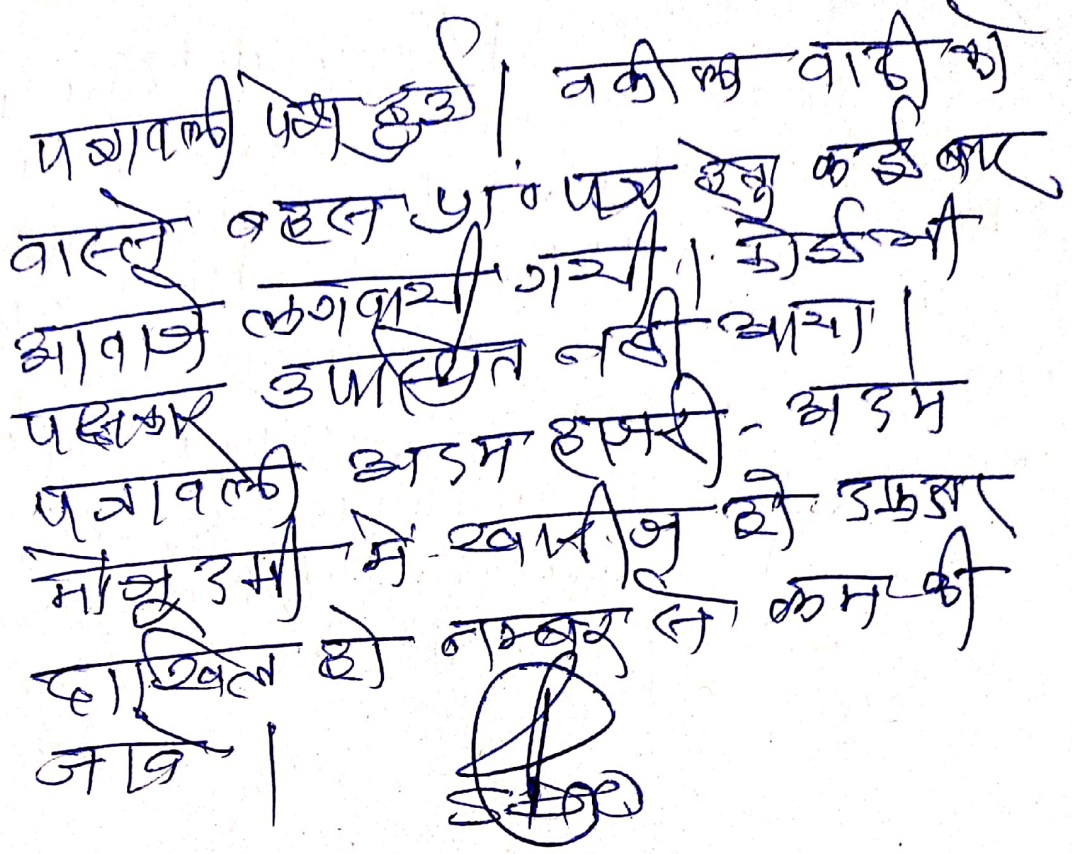 पत्रावली पेश हुई। वकील वादी को
वास्ते बहस प्रा० पत्र हेतु कई बार
आवाजे लगवायी गयी। कोई भी
पक्षकार उपस्थित नही आया।
पत्रावली अदम हाजरी - अदम
मौजूदगी मे खारीज हो
दाखिल हो नम्बर से कम की
जावे।